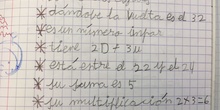 * dándole la vuelta es el 32
* es un número impar
* tiene 2D + 3u
* está entre el 22 y el 24
* su suma es 5
* su multiplicación 2x3=6